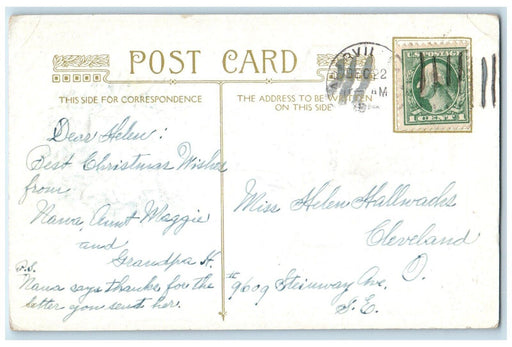 POST CARD
THIS SIDE FOR CORRESPONDENCE
THE ADDRESS TO BE WRITTEN
ON THIS SIDE
U.S. POSTAGE
1 CENT 1
DEC 22
M
Dear Helen:
Best Christmas Wishes
from
Nana, Aunt Maggie
and
Grandpa H.
P.S.
Nana says thanks for the
letter you sent her.
Miss Helen Hallwachs
Cleveland
O.
#9609 Steinway Ave.
S.E.